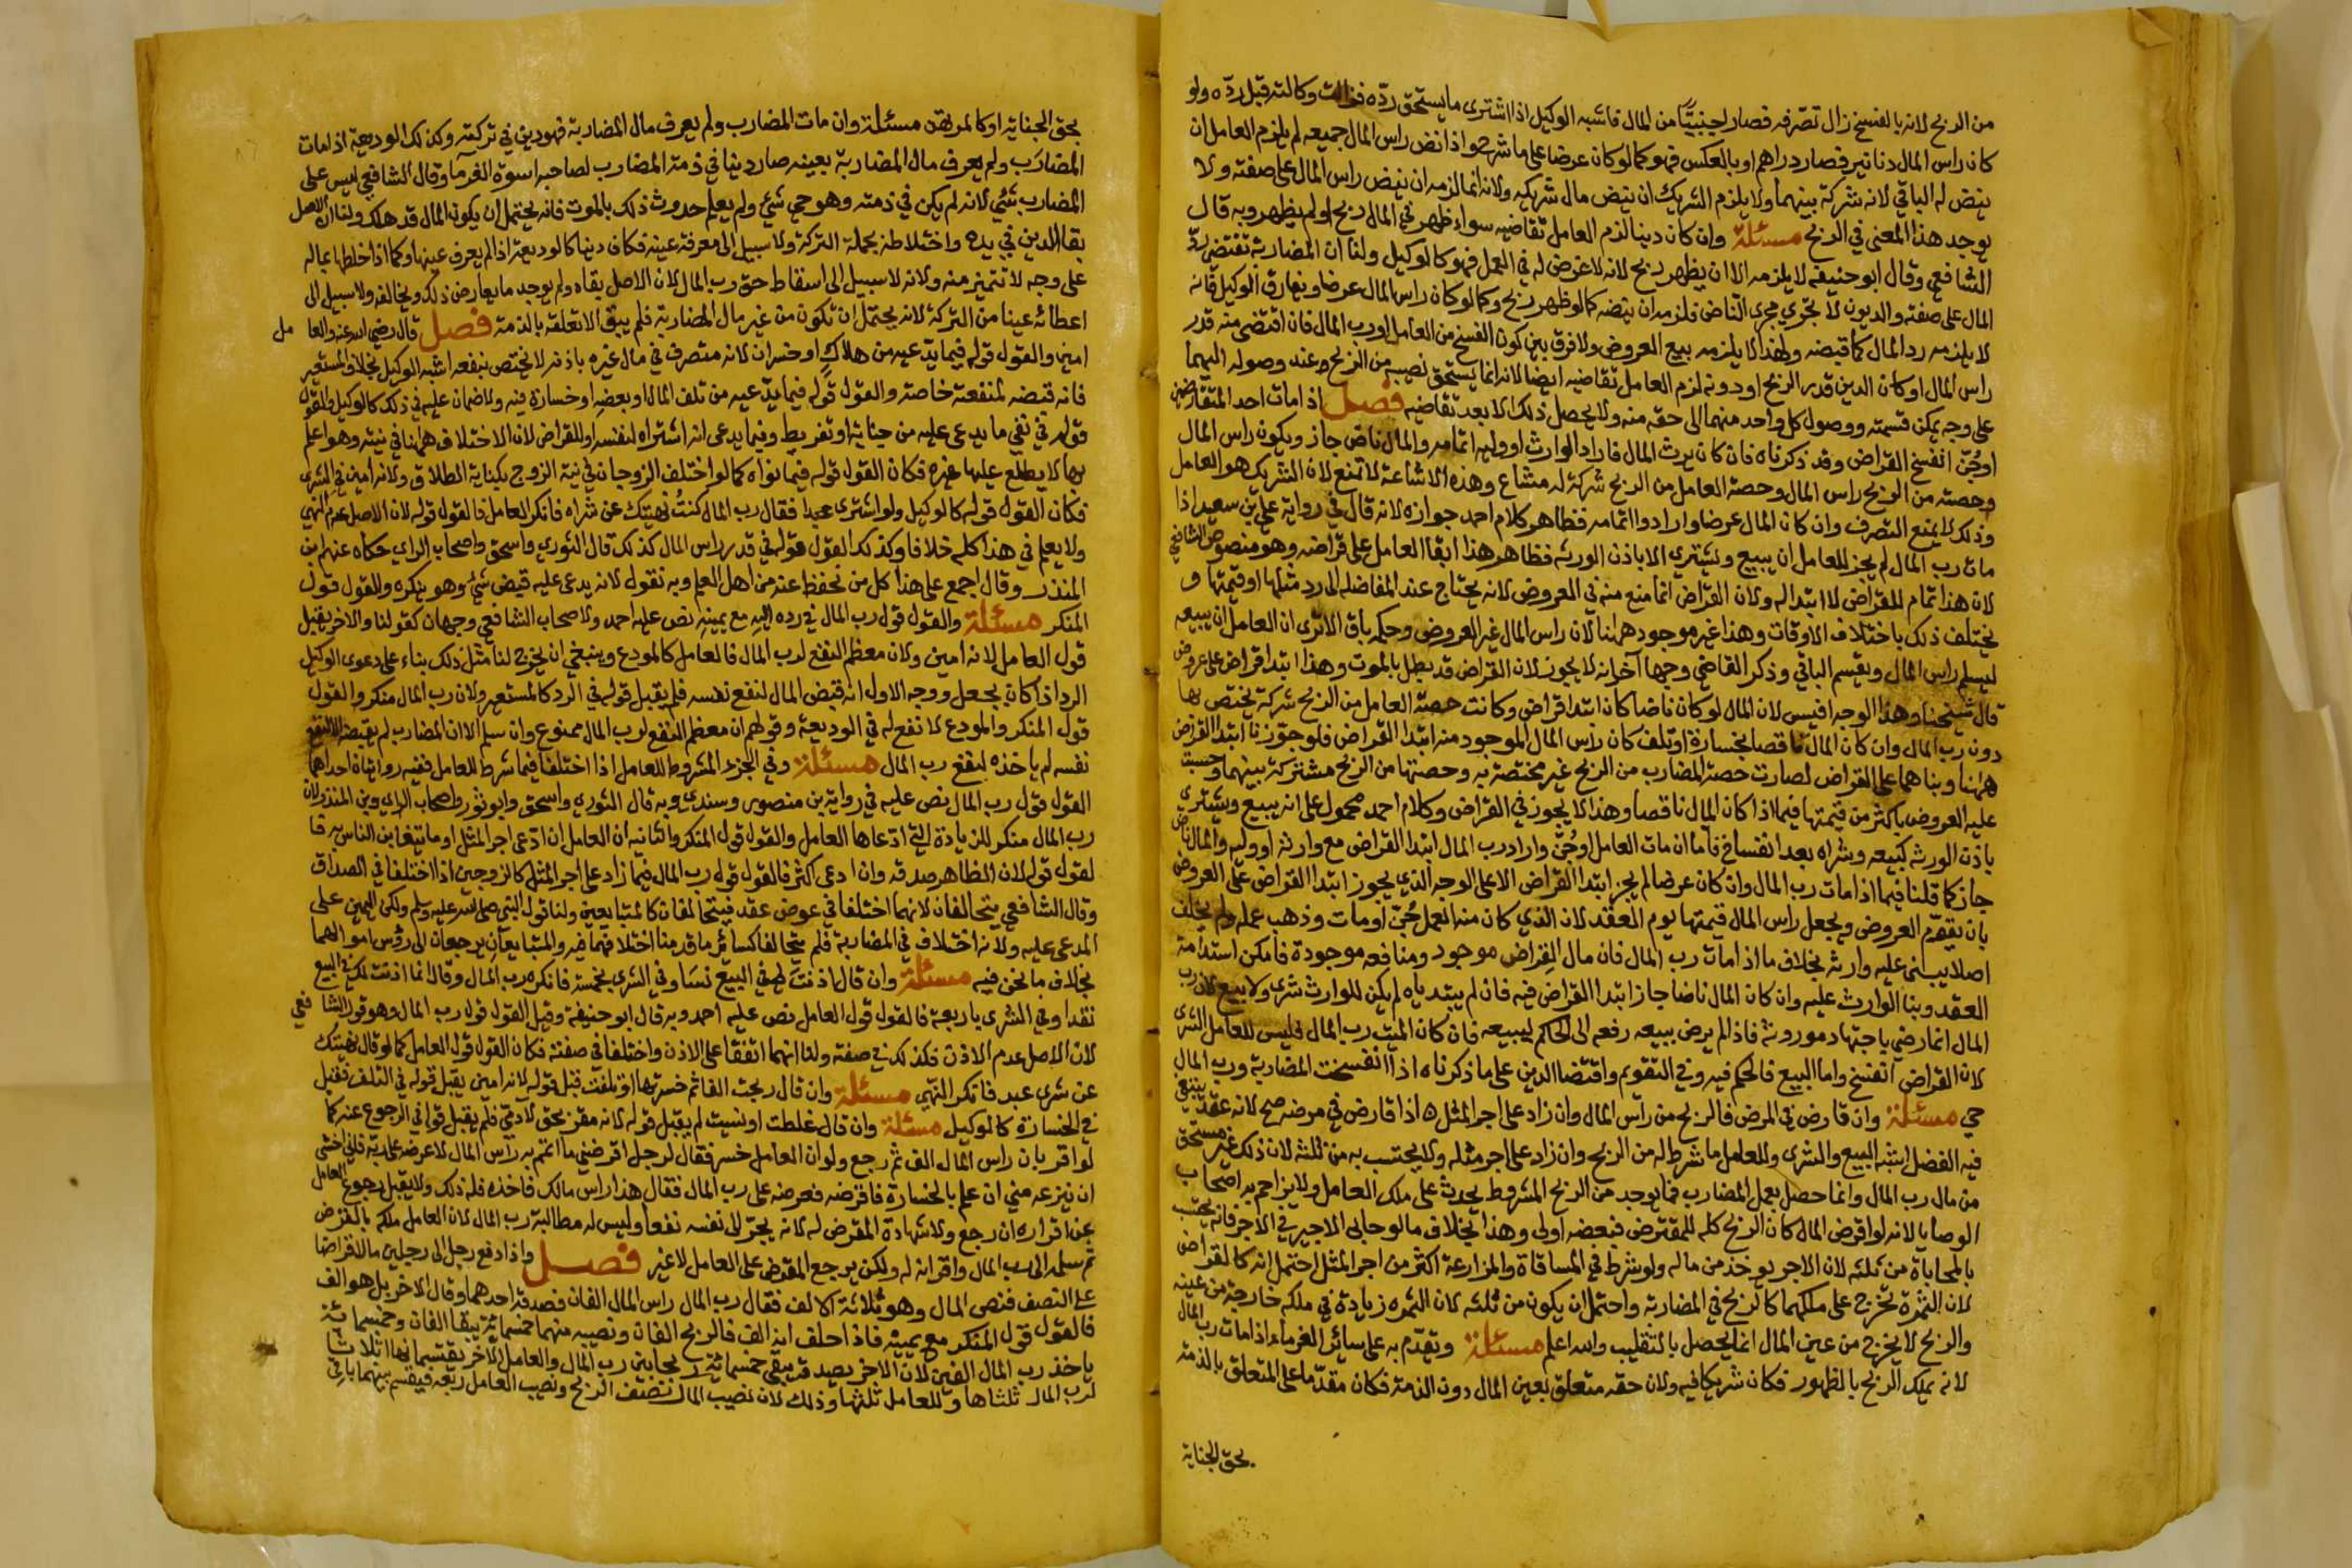 من الربح لانه بالفسخ زال تصرفه فصار اجنبيّا من المال فاشبه الوكيل اذا اشترى ما يستحق ردّه فزالت وكالته قبل ردّه ولو
كان راس المال دنانير فصار دراهم او بالعكس فهو كما لو كان عرضا على ما شرح واذا نض راس المال جميعه لم يلزم العامل ان
ينض له الباقي لانه شركة بينهما ولا يلزم الشريك ان ينض مال شريكه ولانه انما لزمه ان ينض راس المال على صفته ولا
يوجد هذا المعنى في الربح مسئلة وان كان دينا لزم العامل تقاضيه سواء ظهر في المال ربح او لم يظهر وبه قال
الشافعي وقال ابو حنيفه لا يلزمه الا ان يظهر ربح لانه لا غرض له في العمل فهو كالوكيل ولنا ان المضاربة تقتضي ردّ
المال على صفته والديون لا تجري مجرى الناض فلزمه ان ينضه كما لو ظهر ربح وكما لو كان راس المال عرضا ويفارق الوكيل فانه
لا يلزمه رد المال كما قبضه ولهذا لا يلزمه بيع العروض ولا فرق بين كون الفسخ من العامل او رب المال فان اقتضى منه قدر
راس المال او كان الدين قدر الربح او دونه لزم العامل تقاضيه ايضا لانه انما يستحق نصيبه من الربح عند وصوله اليهما
على وجه يمكن قسمته ووصول كل واحد منهما الى حقه منه ولا يحصل ذلك الا بعد تقاضيه فصل اذا مات احد المتقارضين
او جُنّ انفسخ القراض وقد ذكرناه فان كان برب المال فاراد الوارث او وليه اتمامه والمال ناض جاز ويكون راس المال
وحصته من الربح راس المال وحصة العامل من الربح شركة له مشاع وهذه الاشاعة لا تمنع لان الشريك هو العامل
وذلك لا يمنع التصرف وان كان المال عرضا وارادوا اتمامه فظاهر كلام احمد جوازه لانه قال في رواية علي بن سعيد اذا
مات رب المال لم يجز للعامل ان يبيع ويشتري الا باذن الورثه فظاهر هذا ابقا العامل على قراضه وهو منصوص الشافعي
لان هذا اتمام للقراض لا ابتدا له ولان القراض انما منع منه في العروض لانه يحتاج عند المفاضله الى رد مثلها او قيمتها و
يختلف ذلك باختلاف الاوقات وهذا غير موجود ههنا لان راس المال غير العروض وحكمه باق الا ترى ان العامل ان يبيعه
ليسلم راس المال ويقسم الباقي وذكر القاضي وجها آخر انه لا يجوز لان القراض قد بطل بالموت وهذا ابتدا قراض على عروض
قال شيخنا وهذا الوجه اقيس لان المال لو كان ناضا كان ابتدا قراض وكانت حصة العامل من الربح شركة يختص بها
دون رب المال وان كان المال ناقصا بخسارة او تلف كان راس المال الموجود منه ابتدا القراض فلو جوّزنا ابتدا القراض
ههنا وبناهما على القراض لصارت حصة المضارب من الربح غير مختصة به وحصتها من الربح مشتركة بينهما وحسبت
عليه العروض باكثر من قيمتها فيما اذا كان المال ناقصا وهذا لا يجوز في القراض وكلام احمد محمول على انه يبيع ويشتري
باذن الورثه كبيعه وشراه بعد انفساخ فاما ان مات العامل او جُنّ واراد رب المال ابتدا القراض مع وارثه او وليه والمال ناض
جاز كما قلنا فيما اذا مات رب المال وان كان عرضا لم يجز ابتدا القراض الا على الوجه الذي يجوز ابتدا القراض على العروض
بان يقوّم العروض ويجعل راس المال قيمتها يوم العقد لان الذي كان منه العمل جُنّ او مات وذهب عمله ولم يخلف
اصلا يبنى عليه وارثه بخلاف ما اذا مات رب المال فان مال القراض موجود ومنافعه موجودة فامكن استدامة
العقد وبنا الوارث عليه وان كان المال ناضا جاز ابتدا القراض فيه فان لم يبتدياه لم يكن للوارث شرى ولا بيع لان رب
المال انما رضي باجتهاد مورونه فاذا لم يرض ببيعه رفعه الى الحاكم ليبيعه فان كان الميت رب المال فليس للعامل الشرى
لان القراض انفسخ واما البيع فالحكم فيه وفي التقويم واقتضا الدين على ما ذكرناه اذا انفسخت المضاربة ورب المال
حي مسئلة وان قارض في المرض فالربح من راس المال وان زاد على اجر المثل ه اذا قارض في مرضه صح لانه عقد يبتغي
فيه الفضل اشبه البيع والشرى وللعامل ما شرط له من الربح وان زاد على اجر مثله ولا يحتسب به من ثلثه لان ذلك غير مستحق
من مال رب المال وانما حصل بعمل المضارب فما يوجد من الربح المشروط يحدث على ملك العامل ولا يزاحم به اصحاب
الوصايا لانه لو اقرض المال كان الربح كله للمقترض فبعضه اولى وهذا بخلاف ما لو حابى الاجير في الاجر فانه يحتسب
بالمحاباة من ثلثه لان الاجر يوخذ من ماله ولو شرط في المساقاة والمزارعة اكثر من اجر المثل احتمل انه كالقراض
لان الثمرة تخرج على ملكهما كالربح في المضاربة واحتمل ان يكون من ثلثه لان الثمره زيادة في ملكه خارجة من عينه
والربح لا يخرج من عين المال انما يحصل بالتقليب والله اعلم مسئلة ويقدّم به على سائر الغرماء اذا مات رب المال
لانه يملك الربح بالظهور فكان شريكا فيه ولان حقه متعلق بعين المال دون الذمة فكان مقدّما على المتعلق بالذمة
بحق الجناية
بحق الجناية او كالمرتهن مسئلة وان مات المضارب ولم يعرف مال المضاربة فهو دين في تركته وكذلك الوديعة اذا مات
المضارب ولم يعرف مال المضاربة بعينه صار دينا في ذمة المضارب لصاحبه اسوة الغرما وقال الشافعي ليس على
المضارب شئي لانه لم يكن في ذمته وهو حي شئ ولم يعلم حدوث ذلك بالموت فانه يحتمل ان يكون المال قد هلك ولنا ان الاصل
بقا الدين في يده واختلاطه بجملة التركة ولا سبيل الى معرفة عينه فكان دينا كالوديعة اذا لم يعرف عينها وكما اذا خلطها بماله
على وجه لا تتميز منه ولانه لا سبيل الى اسقاط حق رب المال لان الاصل بقاه ولم يوجد ما يعارض ذلك ويخالفه ولا سبيل الى
اعطائه عينا من التركة لانه يحتمل ان تكون من غير مال المضاربة فلم يبق الا تعلقه بالذمة فصل قال رضي الله عنه والعامل
امين والقول قوله فيما يدّعيه من هلاك او خسران لانه متصرف في مال غيره باذنه لا يختص بنفعه اشبه الوكيل بخلاف المستعير
فانه قبضه لمنفعته خاصة والقول قوله فيما يدّعيه من تلف المال او بعضه او خسارة فيه ولا ضمان عليه في ذلك كالوكيل والقول
قوله في نفي ما يدعى عليه من جناية او تفريط وفيما يدعى انه اشتراه لنفسه او للقراض لان الاختلاف ههنا في نيته وهو اعلم
بها لا يطلع عليها غيره فكان القول قوله فيما نواه كما لو اختلف الزوجان في نية الزوج بكناية الطلاق ولانه امين في الشرى
فكان القول قوله كالوكيل ولو اشترى عبدا فقال رب المال كنتُ نهيتك عن شراه فانكر العامل فالقول قوله لان الاصل عدم النهي
ولا يعلم في هذا كله خلافا وكذلك القول قوله في قدر راس المال كذلك قال الثوري واسحق واصحاب الراي حكاه عنهم ابن
المنذر وقال اجمع على هذا كل من نحفظ عنه من اهل العلم وبه نقول لانه يدعى عليه قبض شئ وهو ينكره والقول قول
المنكر مسئلة والقول قول رب المال في رده اليه مع يمينه نص عليه احمد ولاصحاب الشافعي وجهان كقولنا والاخر يقبل
قول العامل لانه امين ولان معظم النفع لرب المال فالعامل كالمودع وينبغي ان يخرج لنا مثل ذلك بناء على دعوى الوكيل
الرد اذا كان بجعل ووجه الاول انه قبض المال لنفع نفسه فلم يقبل قوله في الرد كالمستعير ولان رب المال منكر والقول
قول المنكر والمودع لا نفع له في الوديعة وقولهم ان معظم النفع لرب المال ممنوع وان سلم الا ان المضارب لم يقبضه الا لنفع
نفسه لم ياخذه لنفع رب المال مسئلة وفي الجزء المشروط للعامل اذا اختلفا فيما شرط للعامل ففيه روايتان احداهما
القول قول رب المال نص عليه في رواية بن منصور وسندى وبه قال الثوري واسحق وابو ثور واصحاب الراي وبن المنذر لان
رب المال منكر للزيادة التي ادّعاها العامل والقول قول المنكر والثانيه ان العامل ان ادّعى اجر المثل او ما يتغابن الناس به فا
لقول قوله لان الظاهر صدقه وان ادعى اكثر فالقول قول رب المال فيما زاد على اجر المثل كالزوجين اذا اختلفا في الصداق
وقال الشافعي يتحالفان لانهما اختلفا في عوض عقد فيتحالفان كالمتبايعين ولنا قول النبي صلى الله عليه وسلم ولكن اليمين على
المدعى عليه ولانه اختلاف في المضاربة فلم يتحالفا كسائر ما قدمنا اختلافهما فيه والمتبايعان يرجعان الى رؤس اموالهما
بخلاف ما نحن فيه مسئلة وان قال اذنت لي في البيع نسأ وفي الشرى بخمسة فانكره رب المال وقال انما اذنت لك في البيع
نقدا وفي الشرى باربعة فالقول قول العامل نص عليه احمد وبه قال ابو حنيفة وقيل القول قول رب المال وهو قول الشافعي
لان الاصل عدم الاذن فكذلك في صفته ولنا انهما اتفقا على الاذن واختلفا في صفته فكان القول قول العامل كما لو قال نهيتك
عن شرى عبد فانكر النهي مسئلة وان قال ربحت الفا ثم خسرتها او تلفت قبل قوله لانه امين يقبل قوله في التلف فقبل
في الخسارة كالوكيل مسئلة وان قال غلطت او نسيت لم يقبل قوله لانه مقر بحق لادميّ فلم يقبل قوله في الرجوع عنه كما
لو اقر بان راس المال الف ثم رجع ولو ان العامل خسر فقال لرجل اقرضني ما اتمم به راس المال لاعرضه على ربه فاني اخشى
ان ينزعه مني ان علم بالخسارة فاقرضه فعرضه على رب المال فقال هذا راس مالك فاخذه فله ذلك ولا يقبل رجوع العامل
عن اقراره ان رجع ولا شهادة المقرض له لانه يجرّ الى نفسه نفعا وليس له مطالبة رب المال لان العامل ملكه بالقرض
ثم سلمه الى رب المال واقر انه له ولكن يرجع المقرض على العامل لا غير فصل واذا دفع رجل الى رجلين مالا قراضا
على النصف فنض المال وهو ثلاثة الالف فقال رب المال راس المال الفان فصدقه احدهما وقال الاخر بل هو الف
فالقول قول المنكر مع يمينه فاذا حلف انه الف فالربح الفان ونصيبه منهما خمسمائة يبقا الفان وخمسمائة
ياخذ رب المال الفين لان الاخر يصدقه يبقى خمسمائة ربحا بين رب المال والعامل الاخر يقتسمانها اثلاثا
لرب المال ثلثاها وللعامل ثلثها وذلك لان نصيب المال نصف الربح ونصيب العامل ربعه فيقسم بينهما باقي